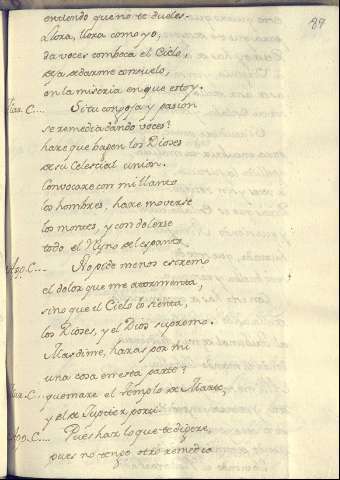 entiendo que no te dueles.
Llora, llora como yo,
da voces rompeca el Cielo,
se a se darme consuelo,
en la miseria en que estoy.
89
C.... Si tu congoja y pasion
se remedia dando voces?
haré que bajen los Dioses
de su Celestial union.
Convocaré con mi llanto
los hombres, haré moverse
los montes, y con dolerse
todo el Reyno de espanto
Ago. C.... No pide menos estremo
el dolor que me atormenta,
sino que el Cielo lo sienta,
los Dioses, y el Dios supremo.
Mas dime, harás por mi
una cosa en esta parte?
C... quemaré el Templo de Marte,
y el de Jupiter por ti
Ago. C.... Pues haz lo que te dijere,
pues no tengo otro remedio